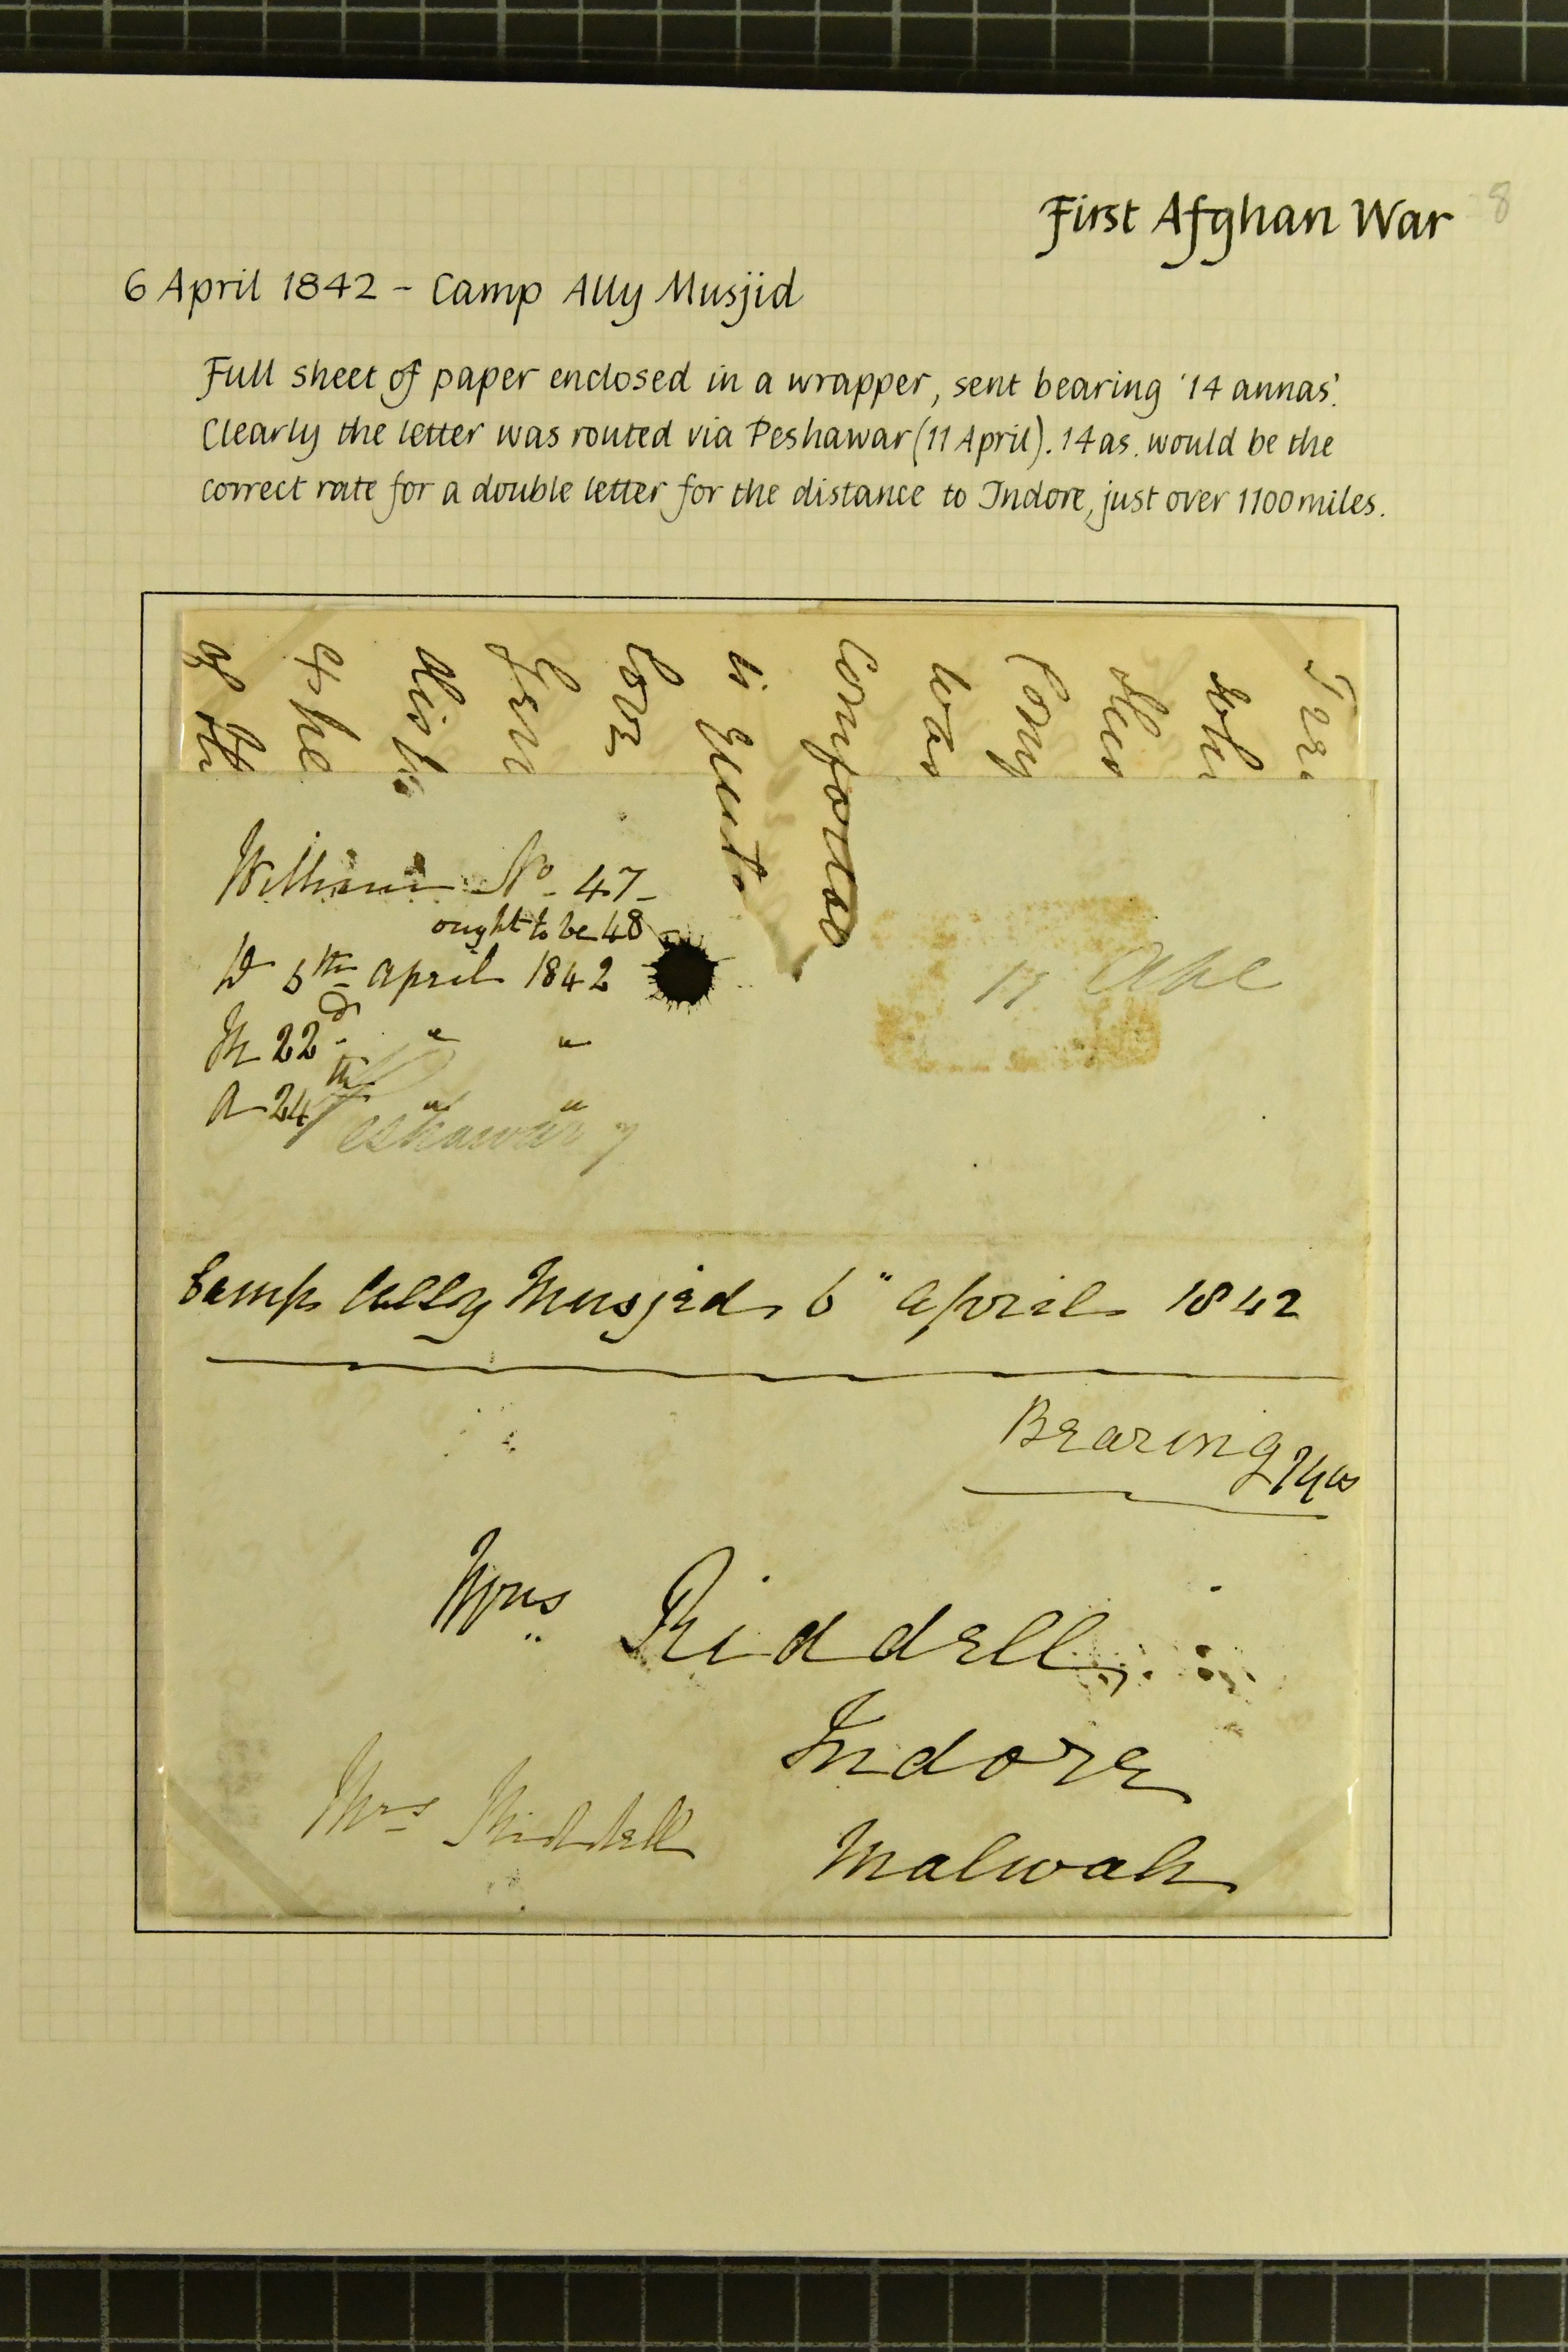 First Afghan War 8
6 April 1842 - Camp Ally Musjid
Full sheet of paper enclosed in a wrapper, sent bearing '14 annas'.
Clearly the letter was routed via Peshawar (11 April). 14 as. would be the
correct rate for a double letter for the distance to Indore, just over 1100 miles.
William No. 47
ought to be 48
D 5th April 1842
22d " "
A 24th " "
Peshawur
Camp Ally Musjid, 6" April 1842
Bearing 14as
Mrs Riddell
Indore
Malwah
Mrs Riddell